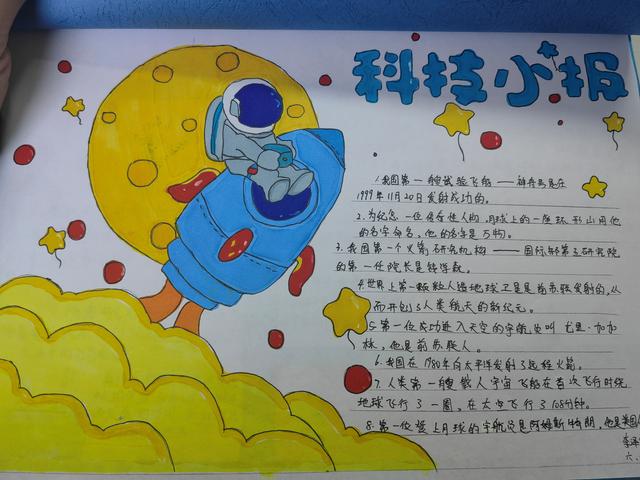 科技小报
1.我国第一艘试验飞船——神舟号是在
1999年11月20日发射成功的。
2.为纪念一位传奇人物,月球上的一座环形山用他
的名字命名,他的名字是万物。
3.我国第一个火箭研究机构——国际部第五研究院
的第一任院长是钱学森。
4.世界上第一颗人造地球卫星是前苏联发射的,从
而开创了人类航天的新纪元。
5.第一位成功进入天空的宇航员叫尤里·加加
林,他是前苏联人。
6.我国在1980年向太平洋发射了远程火箭。
7.人类第一艘载人宇宙飞船在首次飞行时绕
地球飞行了一圈,在太空飞行了108分钟。
8.第一位登上月球的宇航员是阿姆斯特朗,他是美国
六、